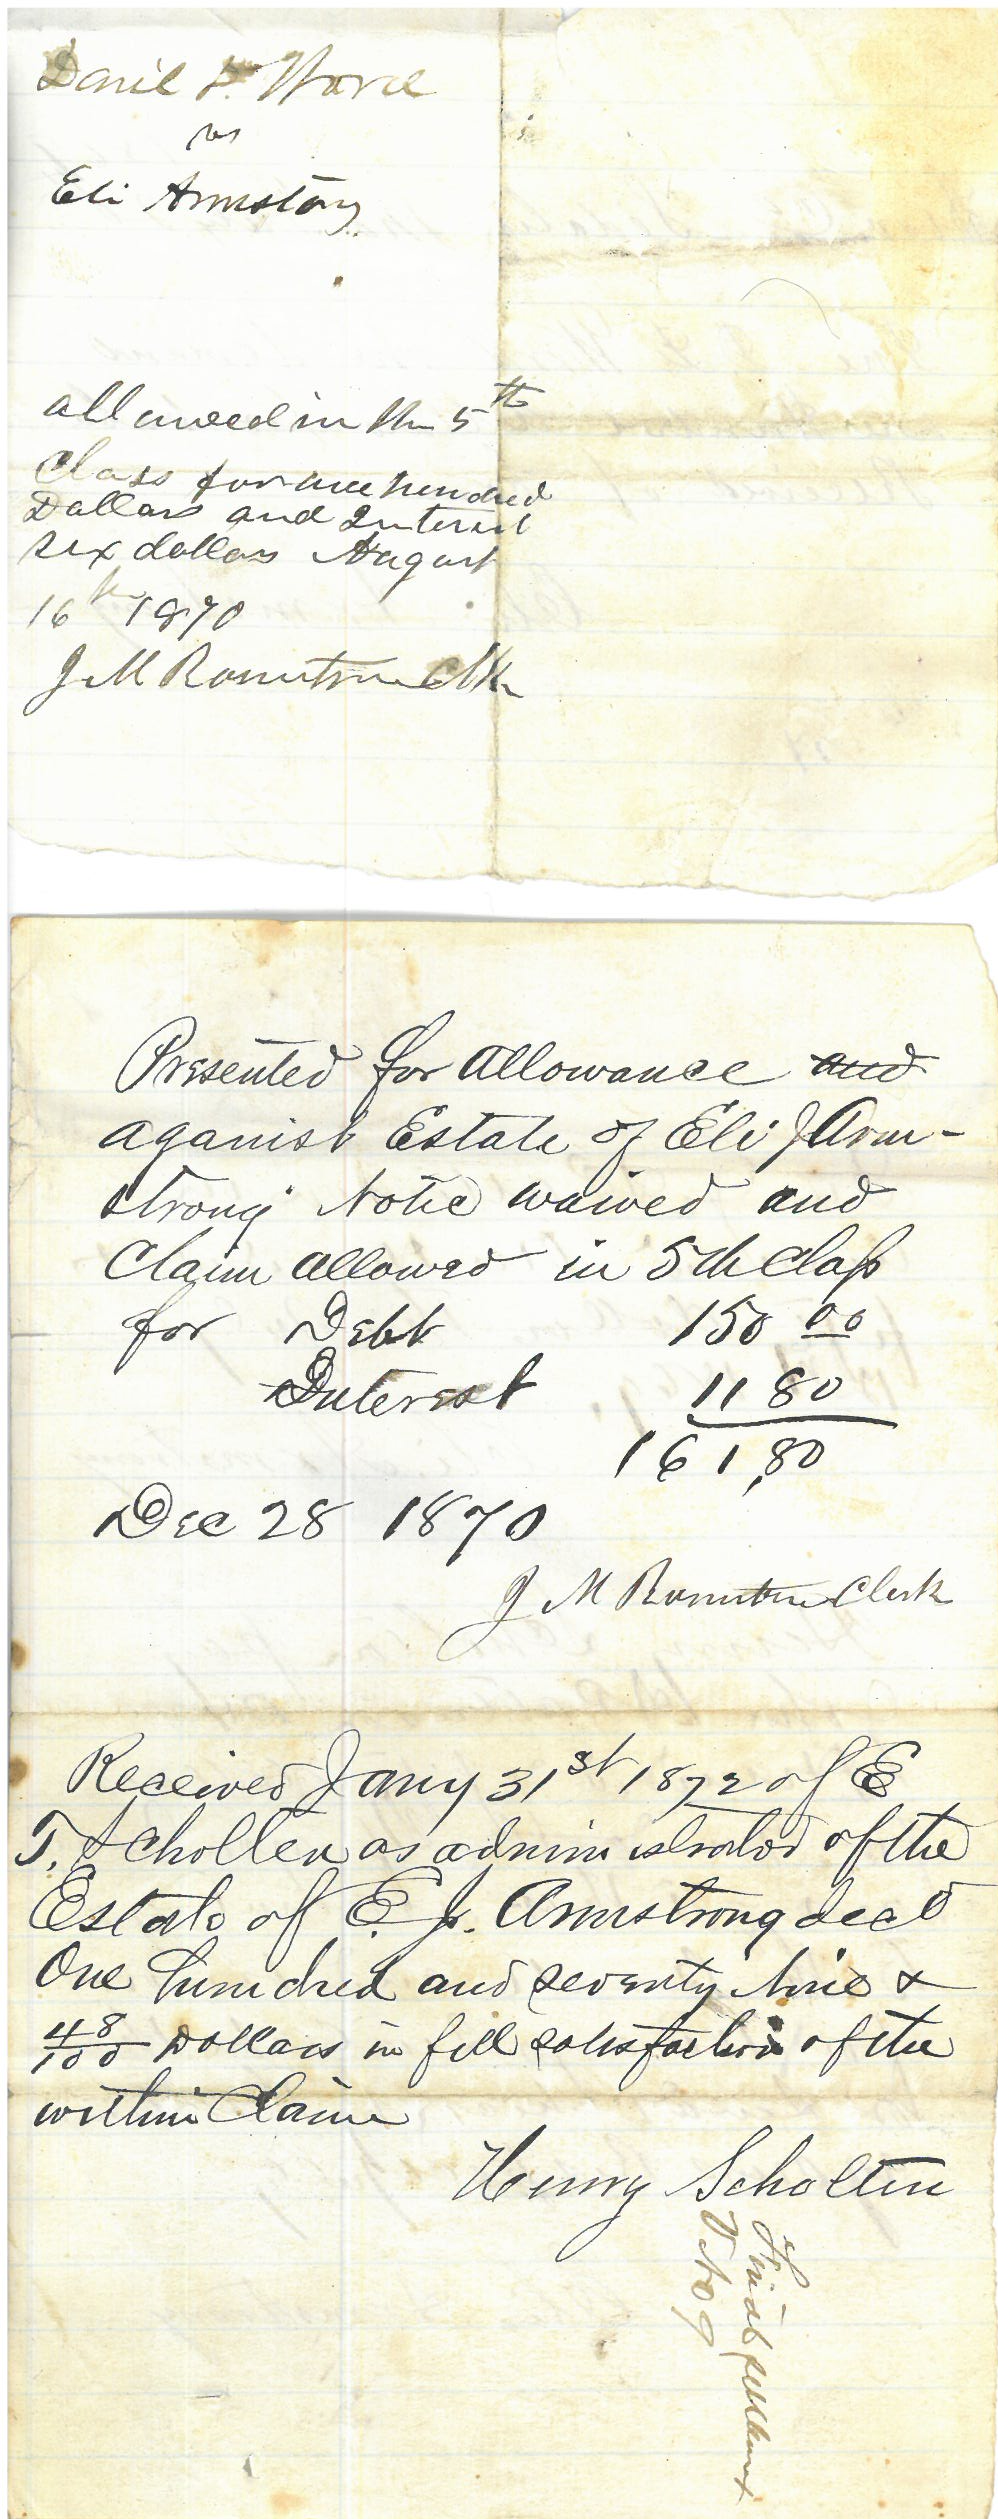 vs
Eli Armstong
allowed in the 5th
Class for one hundred
Dollars and Interest
six dollars August
16th 1870
J M Clk
Presented for allowance and
aganist Estate of Eli J Arm-
strong Notice waived and
Claim allowed in 5th Class
for Debt 150 00
Interest 11 80
161,80
Dec 28 1870
J M Clerk
Received Jany 31st 1872 of E
T. Scholten as administrator of the
Estate of E. J. Armstrong decd
One hundred and seventy Nine &
48/100 Dollars in full satisfaction of the
within Claim
Henry Scholten
Final settlement
V No 9